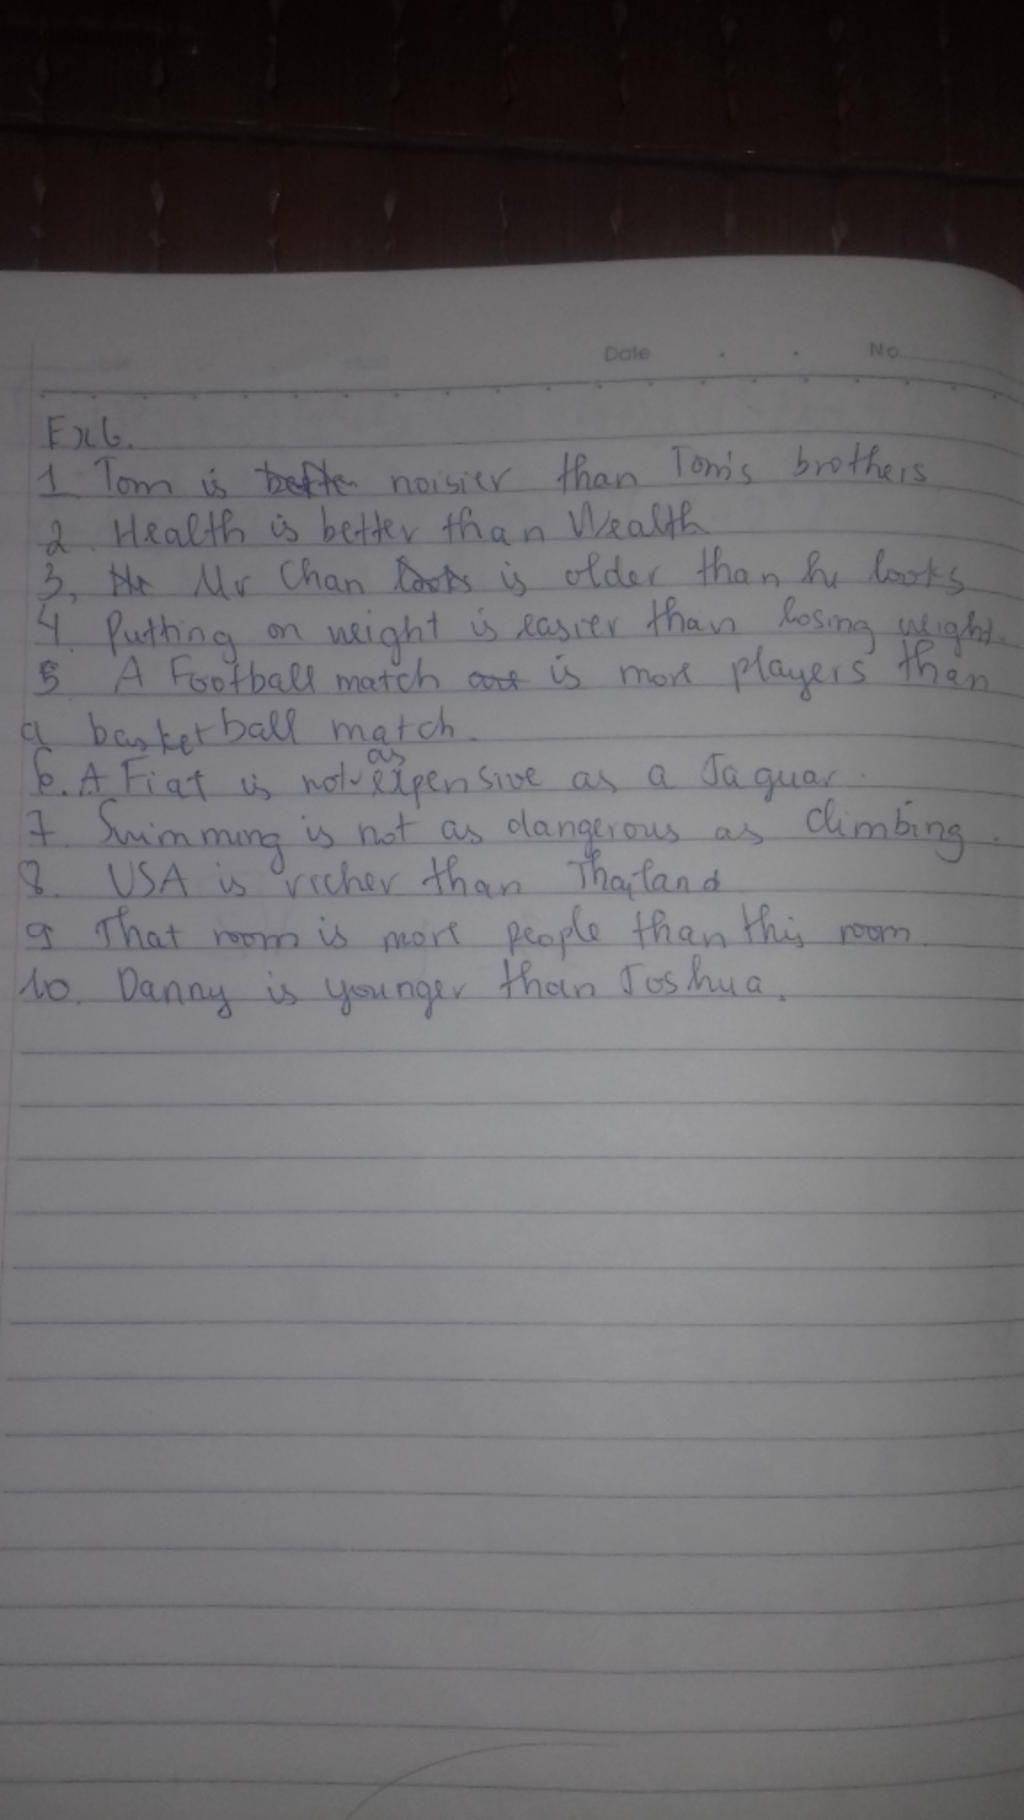 Date . . No
Ex6.
1 Tom is noisier than Tom's brothers
2. Health is better than Wealth
3, Mr Chan is older than he looks
4. Putting on weight is easier than losing weight.
5 A Football match is more players than
a basketball match.
as
6. A Fiat is not expensive as a Jaguar.
7. Swimming is not as dangerous as climbing.
8. USA is richer than Thailand
9 That room is more people than this room
10. Danny is younger than Joshua.